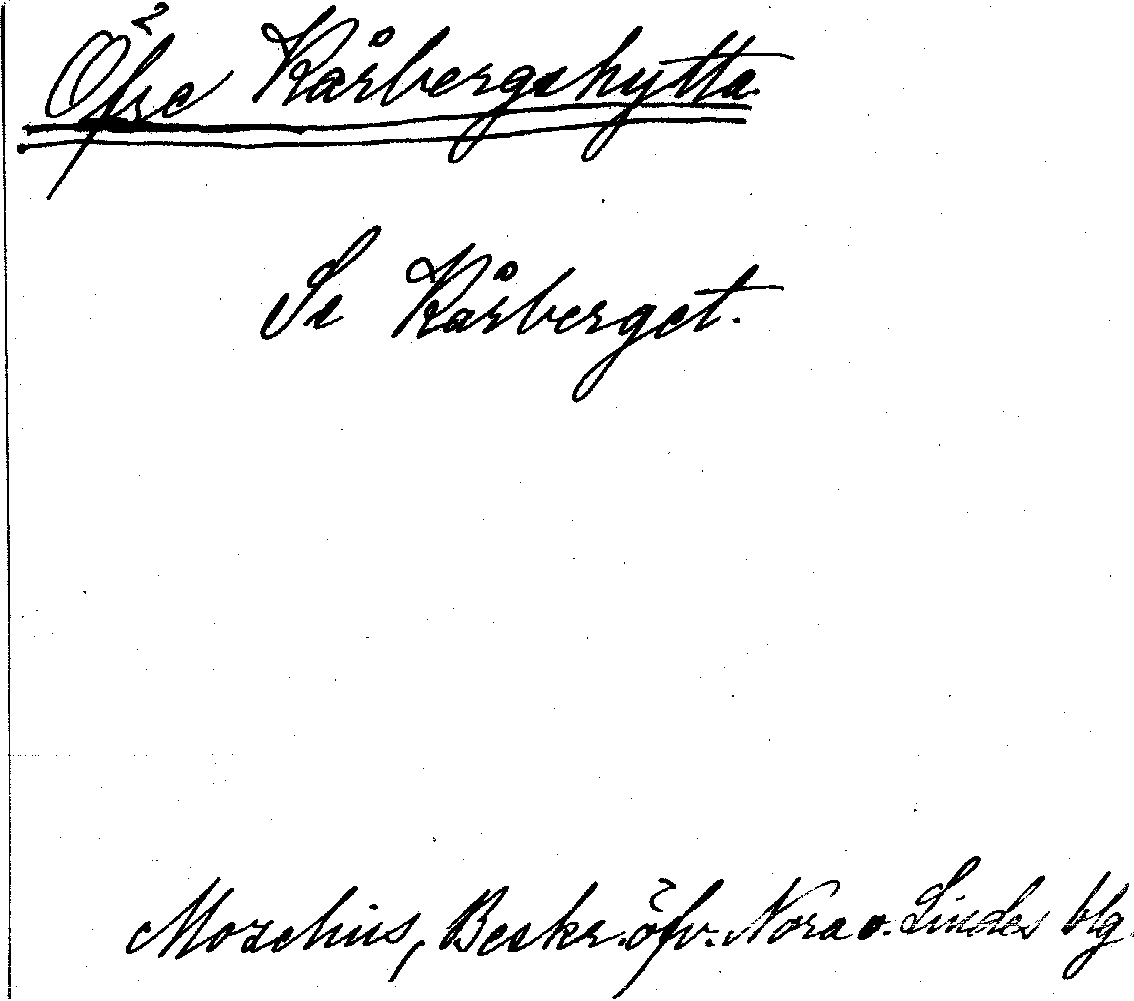 Öfre Kårbergshytta
Se Kårberget.
Moschius, Beskr. öfv. Nora o. Lindes blg.